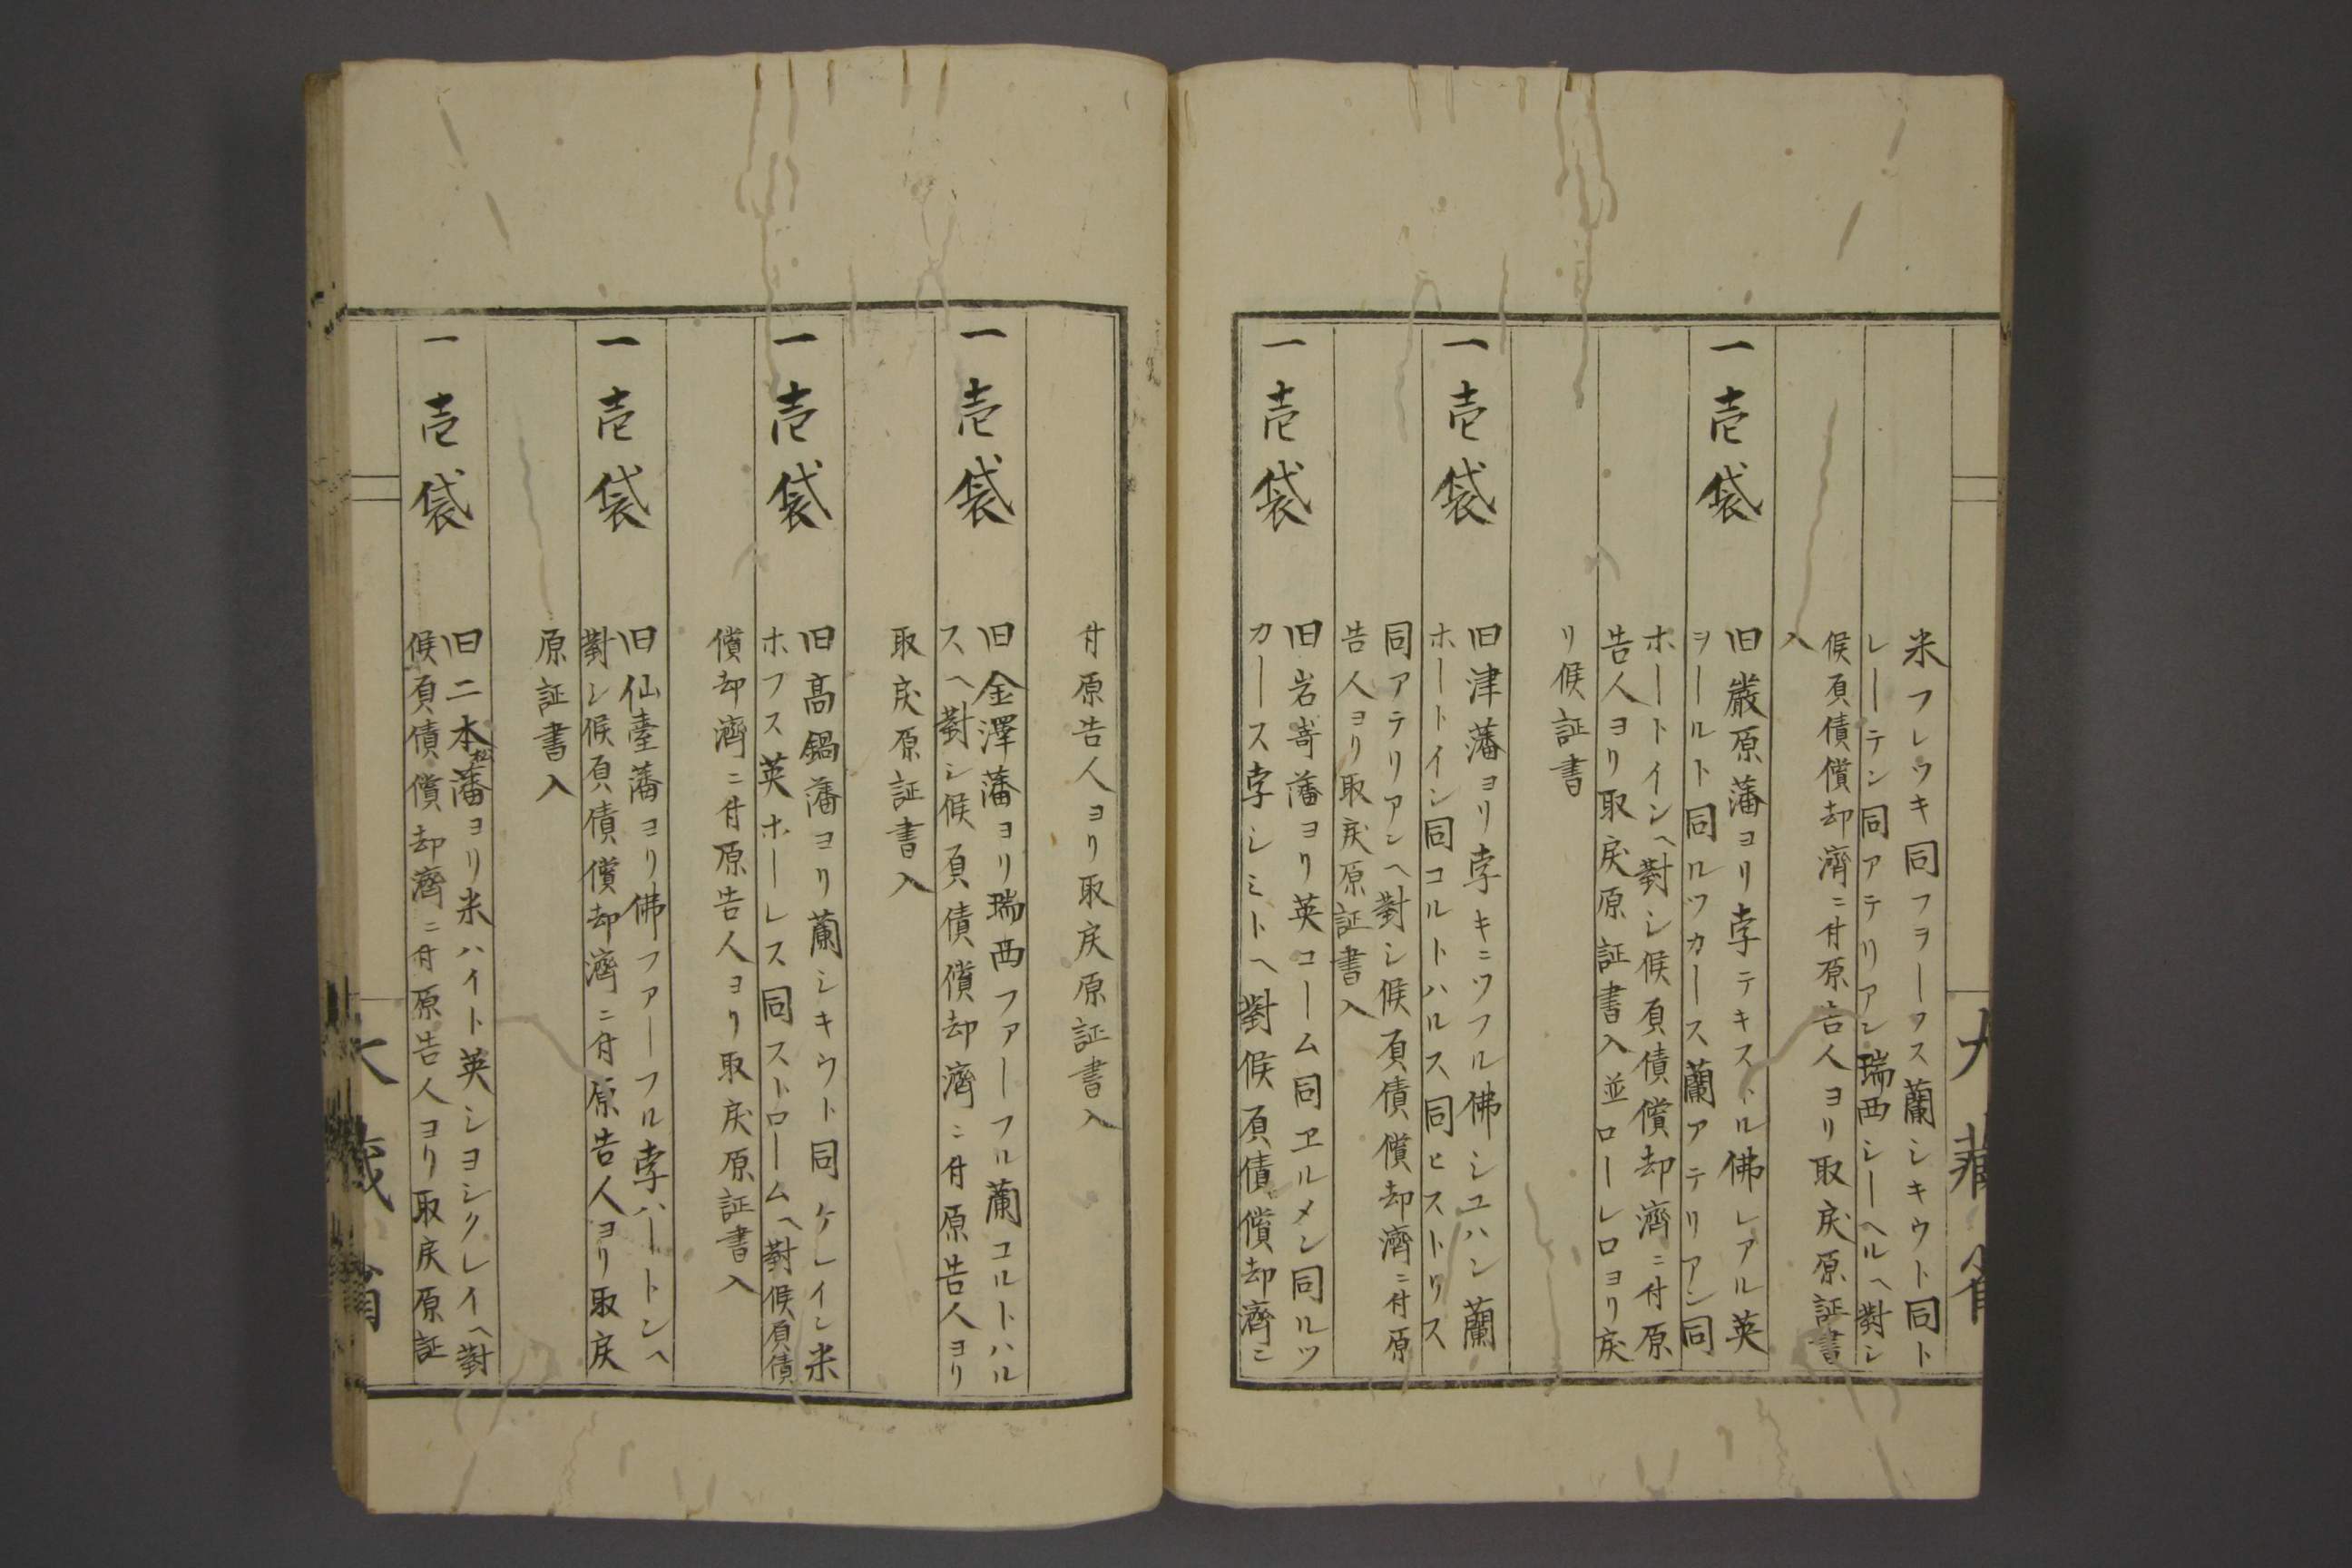 米フレツキ同フヲーフス蘭シキウト同ト
レーテン同アテリアン瑞西シーヘルヘ對シ
候負債償却濟ニ付原告人ヨリ取戻原証書
入
一壱袋
旧嚴原藩ヨリ孛テキストル佛レアル英
ヲールト同ルツカース蘭アテリアン同
ホートインヘ對シ候負債償却濟ニ付原
告人ヨリ取戻原証書入並ローレロヨリ戻
リ候証書
一壱袋
旧津藩ヨリ孛キニツフル佛シユハン蘭
ホートイン同コルトハルス同ヒストリス
同アテリアンヘ對シ候負債償却濟ニ付原
告人ヨリ取戻原証書入
一壱袋
旧岩嵜藩ヨリ英コーム同ヱルメン同ルツ
カース孛シミトヘ對候負債償却濟ニ
大藏省
付原告人ヨリ取戻原証書入
一壱袋
旧金澤藩ヨリ瑞西ファーフル蘭コルトハル
スヘ對シ候負債償却濟ニ付原告人ヨリ
取戻原証書入
一壱袋
旧高鍋藩ヨリ蘭シキウト同ケレイン米
ホフス英ホーレス同ストロームヘ對候負債
償却濟ニ付原告人ヨリ取戻原証書入
一壱袋
旧仙臺藩ヨリ佛ファーフル孛ハートンヘ
對シ候負債償却濟ニ付原告人ヨリ取戻
原証書入
一壱袋
旧二本松藩ヨリ米ハイト英ショシクレイヘ對
候負債償却濟ニ付原告人ヨリ取戻原証
大藏省